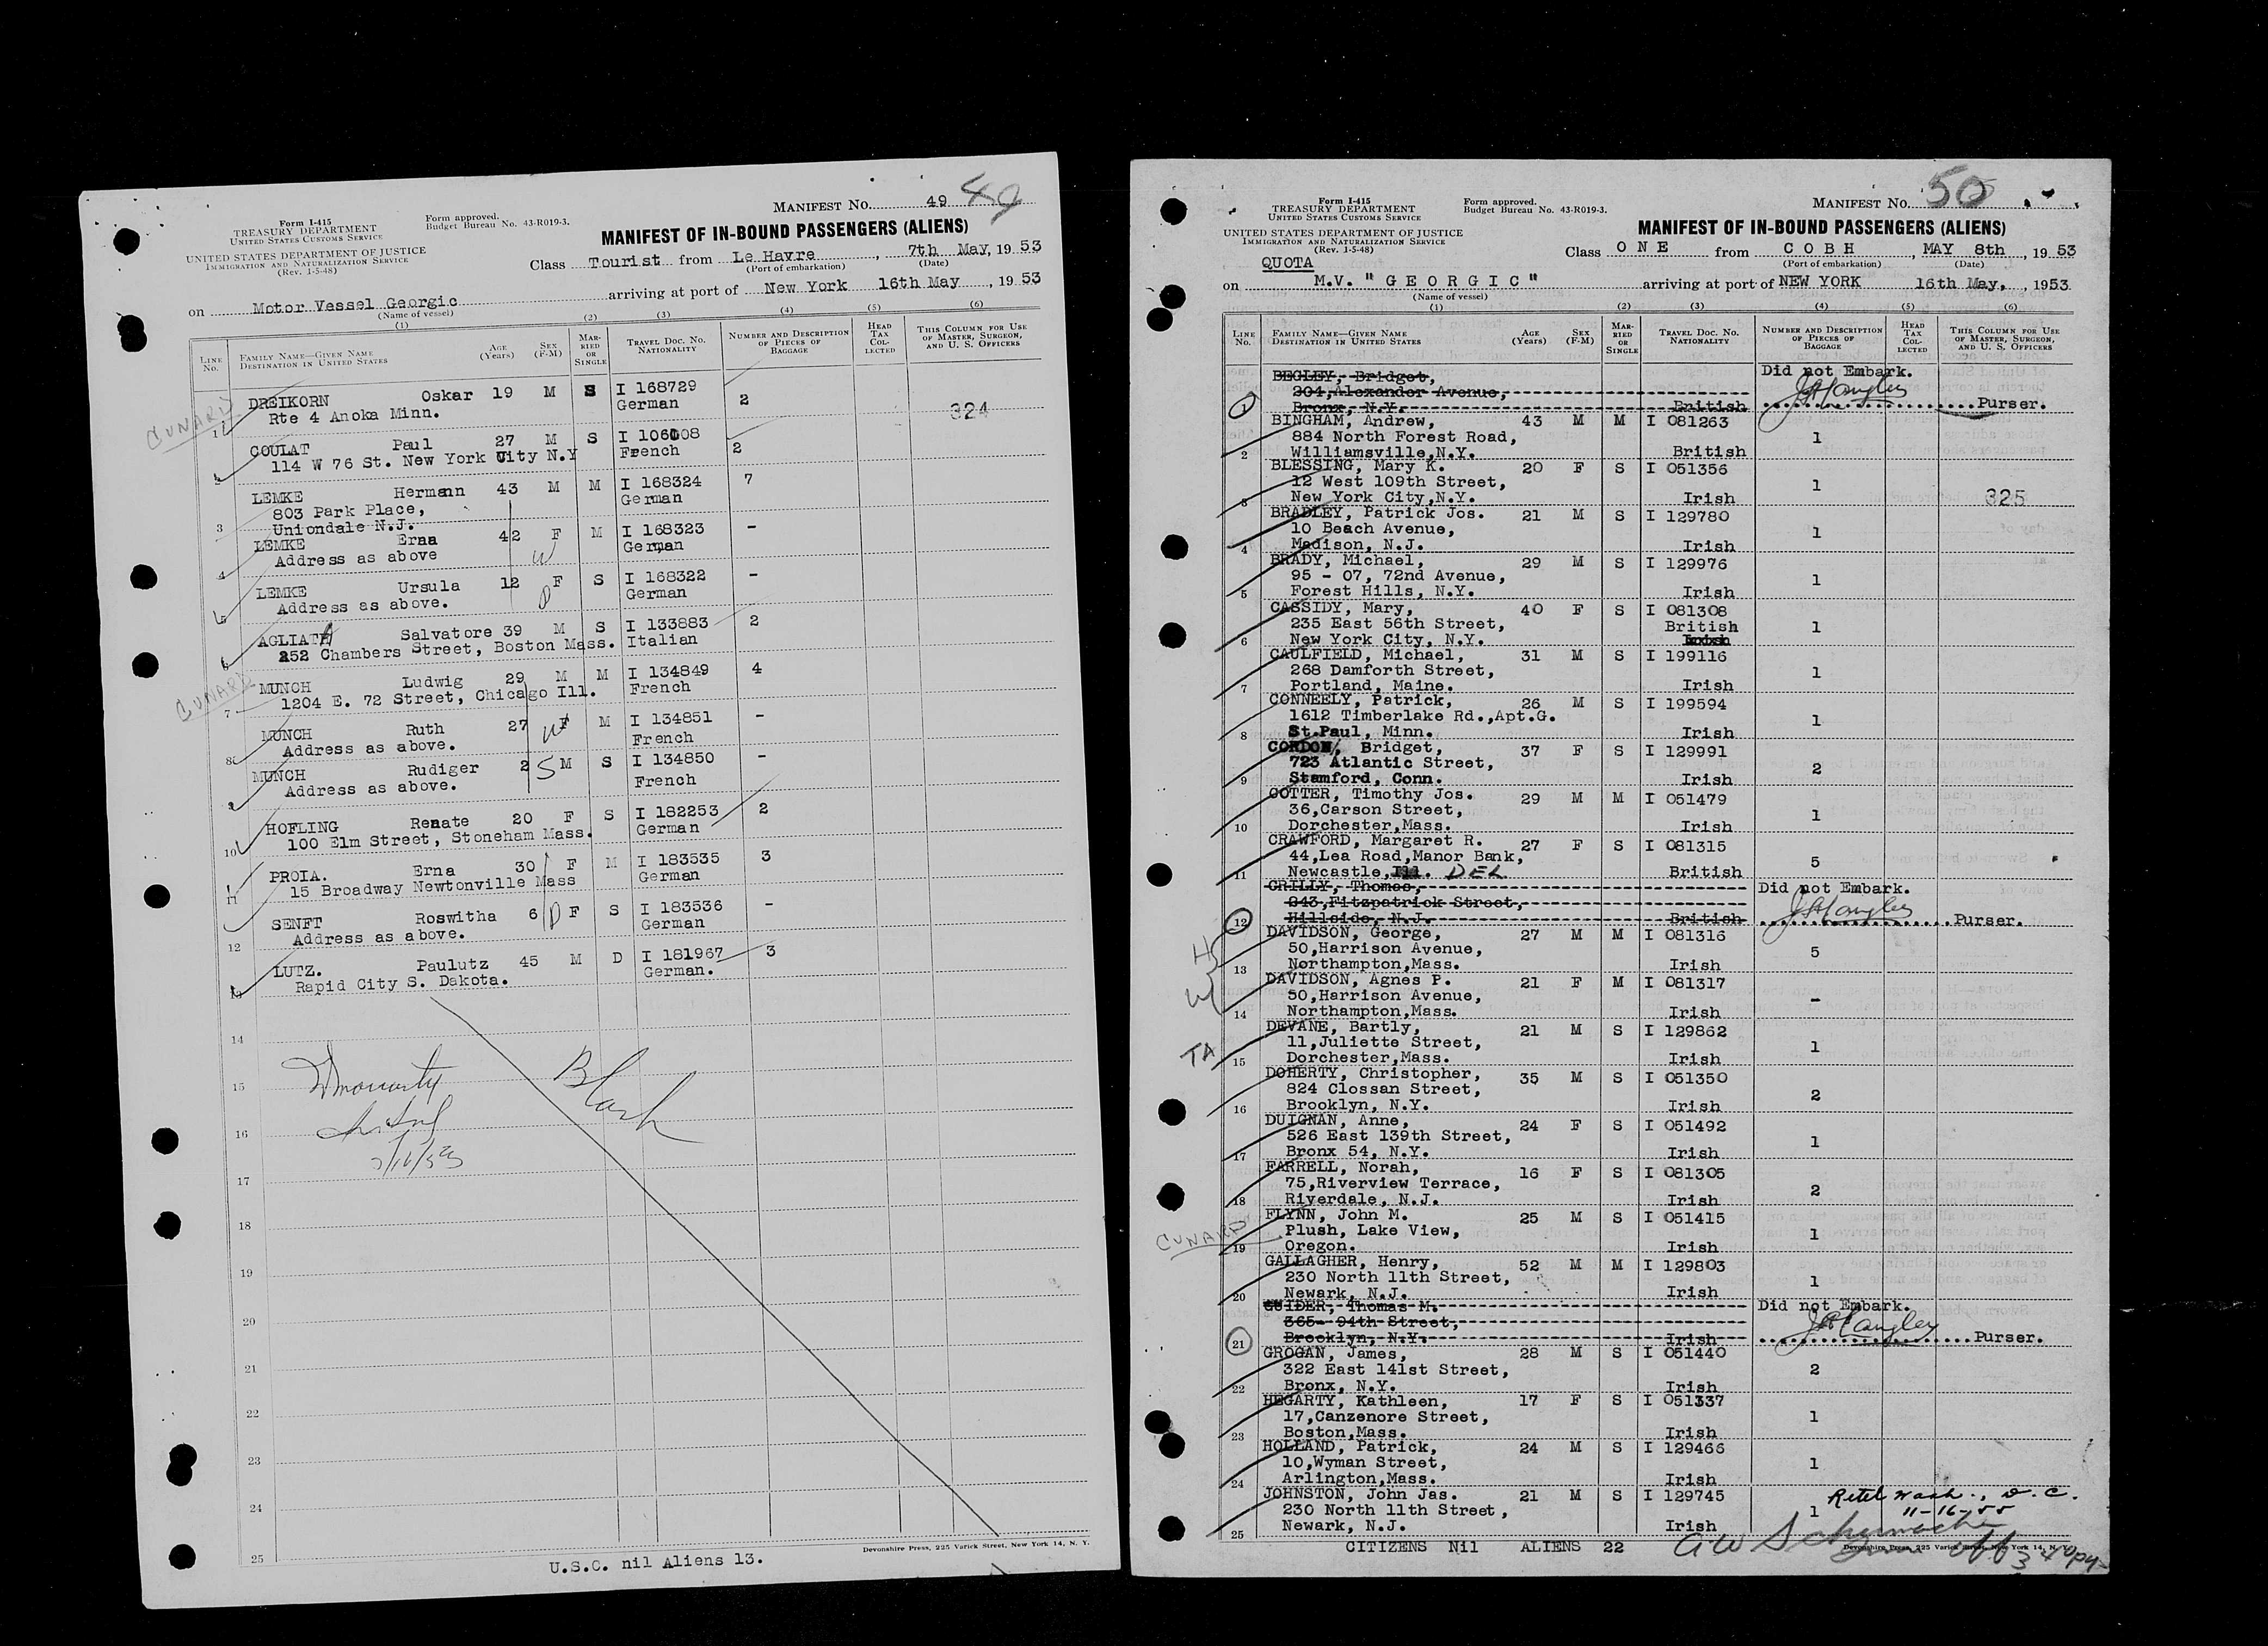 MANIFEST NO. 49 49
Form I-415
TREASURY DEPARTMENT
UNITED STATES CUSTOMS SERVICE
Form approved.
Budget Bureau No. 43-R019-3.
UNITED STATES DEPARTMENT OF JUSTICE
IMMIGRATION AND NATURALIZATION SERVICE
(Rev. 1-5-48)
MANIFEST OF IN-BOUND PASSENGERS (ALIENS)
Class Tourist from Le Havre, 7th May, 19 53
(Port of embarkation) (Date)
on Motor Vessel Georgic arriving at port of New York 16th May, 19 53
(Name of vessel)
(1) (2) (3) (4) (5) (6)
LINE No. FAMILY NAME—GIVEN NAME DESTINATION IN UNITED STATES AGE (Years) SEX (F-M) MARRIED OR SINGLE TRAVEL DOC. NO. NATIONALITY NUMBER AND DESCRIPTION OF PIECES OF BAGGAGE HEAD TAX COLLECTED THIS COLUMN FOR USE OF MASTER, SURGEON, AND U. S. OFFICERS
CUNARD
1 DREIKORN Oskar 19 M S I 168729 2
Rte 4 Anoka Minn. German
324
2 COULAT Paul 27 M S I 106008 2
114 W 76 St. New York City N.Y French
3 LEMKE Hermann 43 M M I 168324 7
803 Park Place, German
Uniondale N.J.
4 LEMKE Erna 42 F M I 168323 -
Address as above W German
5 LEMKE Ursula 12 F S I 168322 -
Address as above. D German
6 AGLIATA Salvatore 39 M S I 133883 2
252 Chambers Street, Boston Mass. Italian
CUNARD
7 MUNCH Ludwig 29 M M I 134849 4
1204 E. 72 Street, Chicago Ill. French
8 MUNCH Ruth 27 W F M I 134851 -
Address as above. French
9 MUNCH Rudiger 2 S M S I 134850 -
Address as above. French
10 HOFLING Renate 20 F S I 182253 2
100 Elm Street, Stoneham Mass. German
11 PROIA. Erna 30 F M I 183535 3
15 Broadway Newtonville Mass German
12 SENFT Roswitha 6 D F S I 183536 -
Address as above. German
13 LUTZ. Paulutz 45 M D I 181967 3
Rapid City S. Dakota. German.
14
15
16
17
18
19
20
21
22
23
24
25
U.S.C. nil Aliens 13.
Devonshire Press, 225 Varick Street, New York 14, N. Y.
MANIFEST NO. 50
Form I-415
TREASURY DEPARTMENT
UNITED STATES CUSTOMS SERVICE
Form approved.
Budget Bureau No. 43-R019-3.
UNITED STATES DEPARTMENT OF JUSTICE
IMMIGRATION AND NATURALIZATION SERVICE
(Rev. 1-5-48)
QUOTA
MANIFEST OF IN-BOUND PASSENGERS (ALIENS)
Class O N E from C O B H, MAY 8th, 19 53
(Port of embarkation) (Date)
on M.V. "G E O R G I C" arriving at port of NEW YORK 16th May, , 1953
(Name of vessel)
(1) (2) (3) (4) (5) (6)
LINE No. FAMILY NAME—GIVEN NAME DESTINATION IN UNITED STATES AGE (Years) SEX (F-M) MARRIED OR SINGLE TRAVEL DOC. NO. NATIONALITY NUMBER AND DESCRIPTION OF PIECES OF BAGGAGE HEAD TAX COLLECTED THIS COLUMN FOR USE OF MASTER, SURGEON, AND U. S. OFFICERS
1 BEGLEY, Bridget, Did not Embark.
204, Alexander Avenue,
Bronx, N.Y. British Purser.
2 BINGHAM, Andrew, 43 M M I 081263
884 North Forest Road, 1
Williamsville, N.Y. British
3 BLESSING, Mary K. 20 F S I 051356
12 West 109th Street, 1
New York City, N.Y. Irish 325
4 BRADLEY, Patrick Jos. 21 M S I 129780
10 Beach Avenue, 1
Madison, N.J. Irish
5 BRADY, Michael, 29 M S I 129976
95 - 07, 72nd Avenue, 1
Forest Hills, N.Y. Irish
6 CASSIDY, Mary, 40 F S I 081308
235 East 56th Street, British 1
New York City, N.Y.
7 CAULFIELD, Michael, 31 M S I 199116
268 Damforth Street, 1
Portland, Maine. Irish
8 CONNEELY, Patrick, 26 M S I 199594
1612 Timberlake Rd., Apt.G. 1
St.Paul, Minn. Irish
9 CORDON, Bridget, 37 F S I 129991
723 Atlantic Street, 2
Stamford, Conn. Irish
10 COTTER, Timothy Jos. 29 M M I 051479
36, Carson Street, 1
Dorchester, Mass. Irish
11 CRAWFORD, Margaret R. 27 F S I 081315
44, Lea Road, Manor Bank, 5
Newcastle, Ill. DEL British
12 CRILLY, Thomas, Did not Embark.
843, Fitzpatrick Street,
Hillside, N.J. British Purser.
13 DAVIDSON, George, 27 M M I 081316
H 50, Harrison Avenue, 5
Northampton, Mass. Irish
14 DAVIDSON, Agnes P. 21 F M I 081317
W 50, Harrison Avenue, -
Northampton, Mass. Irish
15 DEVANE, Bartly, 21 M S I 129862
TA 11, Juliette Street, 1
Dorchester, Mass. Irish
16 DOHERTY, Christopher, 35 M S I 051350
824 Clossan Street, 2
Brooklyn, N.Y. Irish
17 DUIGNAN, Anne, 24 F S I 051492
526 East 139th Street, 1
Bronx 54, N.Y. Irish
18 FARRELL, Norah, 16 F S I 081305
75, Riverview Terrace, 2
Riverdale, N.J. Irish
19 FLYNN, John M. 25 M S I 051415
CUNARD Plush, Lake View, 1
Oregon. Irish
20 GALLAGHER, Henry, 52 M M I 129803
230 North 11th Street, 1
Newark, N.J. Irish
21 GUIDER, Thomas M. Did not Embark.
365- 94th Street,
Brooklyn, N.Y. Irish Purser.
22 GROGAN, James, 28 M S I 051440
322 East 141st Street, 2
Bronx, N.Y. Irish
23 HEGARTY, Kathleen, 17 F S I 051337
17, Canzenore Street, 1
Boston, Mass. Irish
24 HOLLAND, Patrick, 24 M S I 129466
10, Wyman Street, 1
Arlington, Mass. Irish
25 JOHNSTON, John Jas. 21 M S I 129745
230 North 11th Street, 1
Newark, N.J. Irish
Wash., D.C.
11-16-55
CITIZENS Nil ALIENS 22
Devonshire Press, 225 Varick Street, New York 14, N. Y.